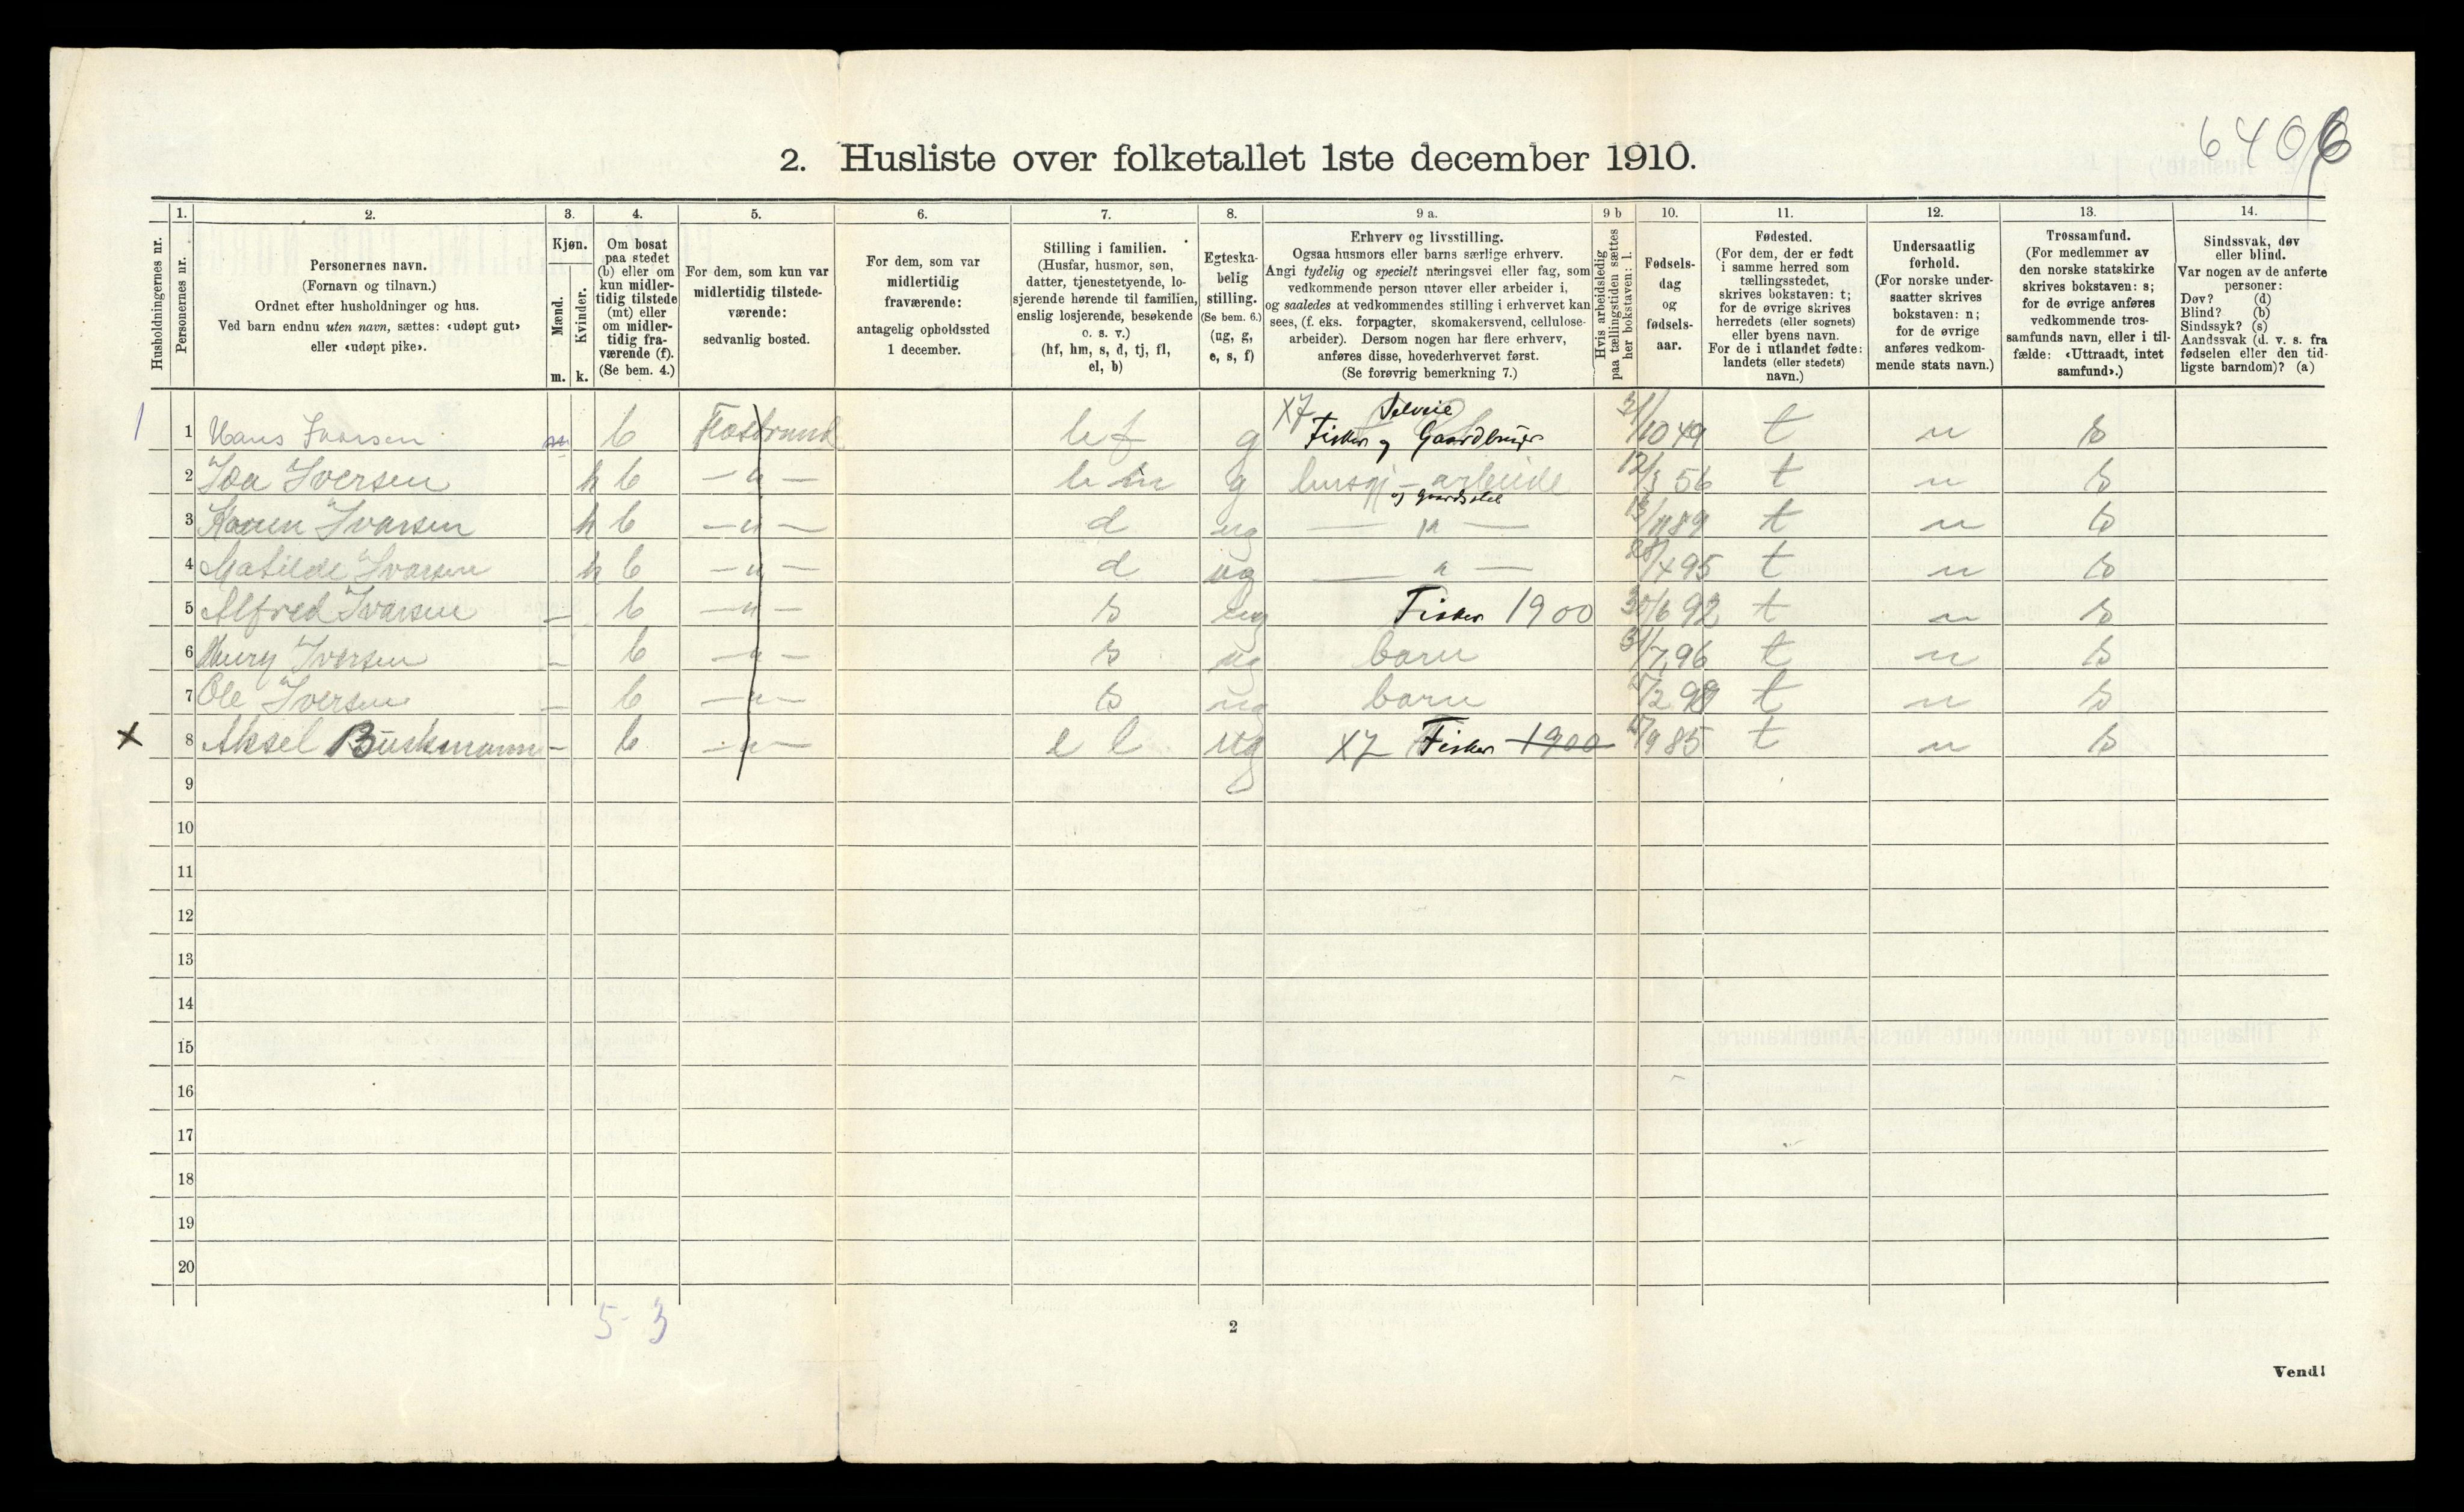 6406
2. Husliste over folketallet 1ste december 1910.
Husholdningernes nr.
1. Personernes nr.
2. Personernes navn.
(Fornavn og tilnavn.)
Ordnet efter husholdninger og hus.
Ved barn endnu uten navn, sættes: «udøpt gut»
eller «udøpt pike».
3. Kjøn.
Mænd. m.
Kvinder. k.
4. Om bosat
paa stedet
(b) eller om
kun midler-
tidig tilstede
(mt) eller
om midler-
tidig fra-
værende (f).
(Se bem. 4.)
5. For dem, som kun var
midlertidig tilstede-
værende:
sedvanlig bosted.
6. For dem, som var
midlertidig
fraværende:
antagelig opholdssted
1 december.
7. Stilling i familien.
(Husfar, husmor, søn,
datter, tjenestetyende, lo-
sjerende hørende til familien,
enslig losjerende, besøkende
o. s. v.)
(hf, hm, s, d, tj, fl,
el, b)
8. Egteska-
belig
stilling.
(Se bem. 6.)
(ug, g,
e, s, f)
9 a. Erhverv og livsstilling.
Ogsaa husmors eller barns særlige erhverv.
Angi tydelig og specielt næringsvei eller fag, som
vedkommende person utøver eller arbeider i,
og saaledes at vedkommendes stilling i erhvervet kan
sees, (f. eks. forpagter, skomakersvend, cellulose-
arbeider). Dersom nogen har flere erhverv,
anføres disse, hovederhvervet først.
(Se forøvrig bemerkning 7.)
9 b Hvis arbeidsledig
paa tællingstiden sættes
her bokstaven: l.
10. Fødsels-
dag
og
fødsels-
aar.
11. Fødested.
(For dem, der er født
i samme herred som
tællingsstedet,
skrives bokstaven: t;
for de øvrige skrives
herredets (eller sognets)
eller byens navn.
For de i utlandet fødte:
landets (eller stedets)
navn.)
12. Undersaatlig
forhold.
(For norske under-
saatter skrives
bokstaven: n;
for de øvrige
anføres vedkom-
mende stats navn.)
13. Trossamfund.
(For medlemmer av
den norske statskirke
skrives bokstaven: s;
for de øvrige anføres
vedkommende tros-
samfunds navn, eller i til-
fælde: «Uttraadt, intet
samfund».)
14. Sindssvak, døv
eller blind.
Var nogen av de anførte
personer:
Døv? (d)
Blind? (b)
Sindssyk? (s)
Aandssvak (d. v. s. fra
fødselen eller den tid-
ligste barndom)? (a)
1 1 Hans Ivarsen m b hf g X7 Selveie Fisker og Gaardbruger 31/10 49 t n s
2 Ida Iversen k b — " — hm g husgj — arbeide og gaardsstel 12/3 56 t n s
3 Karen Ivarsen k b — " — d ug — " — 13/11 89 t n s
4 Matilde Ivarsen k b — " — d ug — " — 28/4 95 t n s
5 Alfred Ivarsen — b — " — s ug Fisker 1900 30/6 92 t n s
6 Iversen — b — " — s ug barn 31/7 96 t n s
7 Ole Iversen — b — " — s ug barn t n s
X 8 Aksel Buskmann — b — " — e l ug X7 Fisker 1900 /9 85 t n s
9
10
11
12
13
14
15
16
17
18
19
20
5 3
2
Vend!